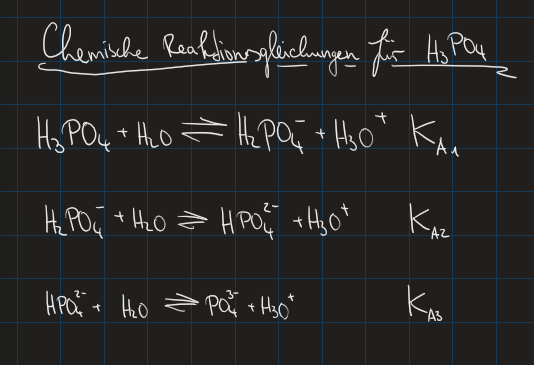 Chemische Reaktionsgleichungen für H₃PO₄
H₃PO₄ + H₂O ⇌ H₂PO₄⁻ + H₃O⁺ K_A1
H₂PO₄⁻ + H₂O ⇌ HPO₄²⁻ + H₃O⁺ K_A2
HPO₄²⁻ + H₂O ⇌ PO₄³⁻ + H₃O⁺ K_A3